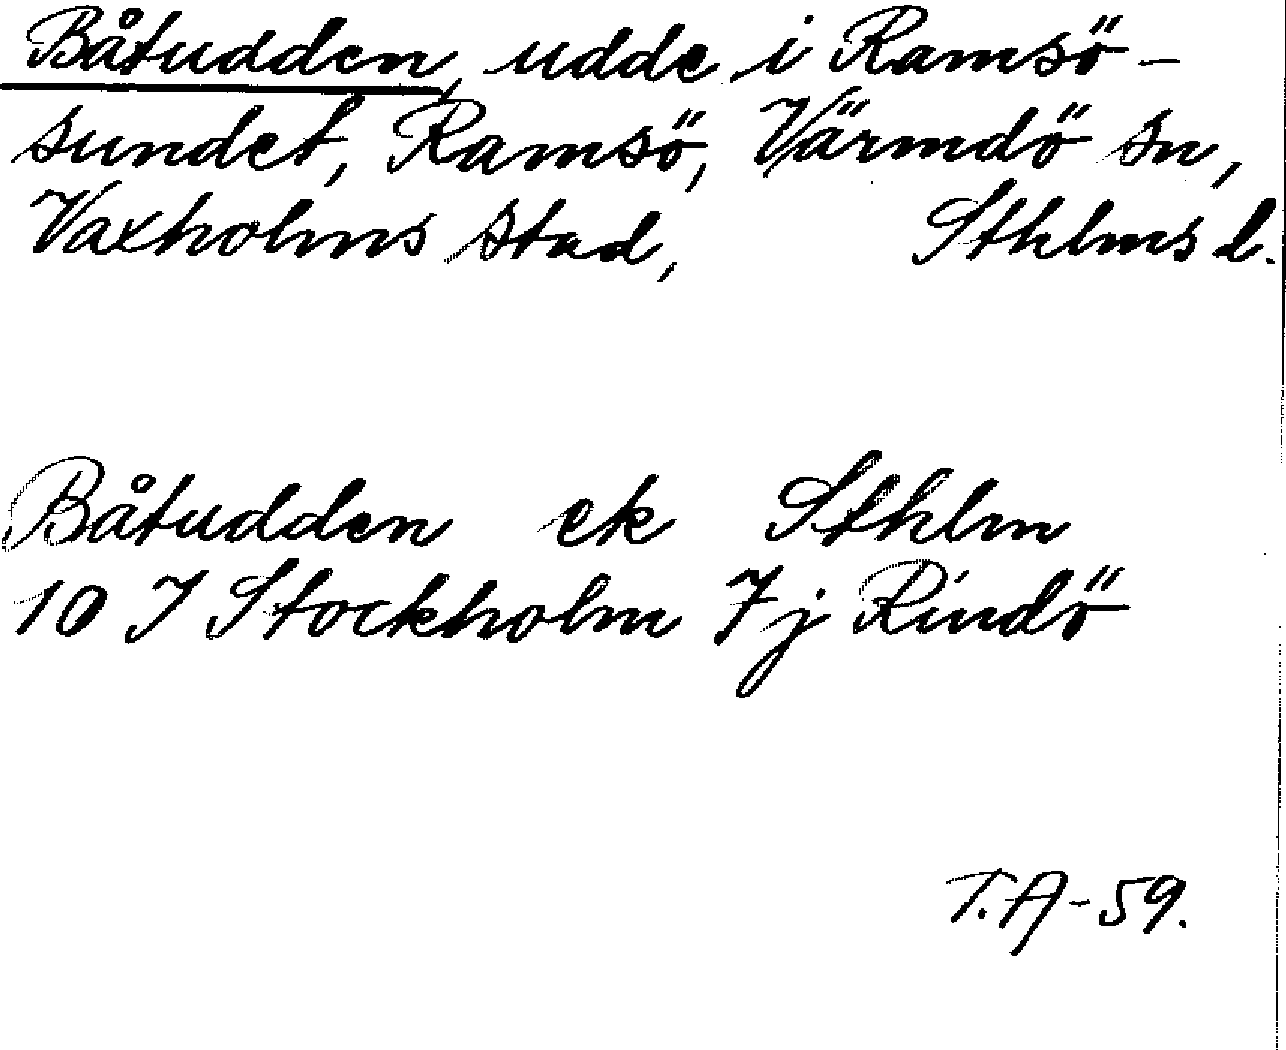 Båtudden, udde i Ramsö-
sundet, Ramsö, Värmdö sn,
Vaxholms stad, Sthlms l.
Båtudden ek Sthlm
10 I Stockholm 7j Rindö
T.A-59.